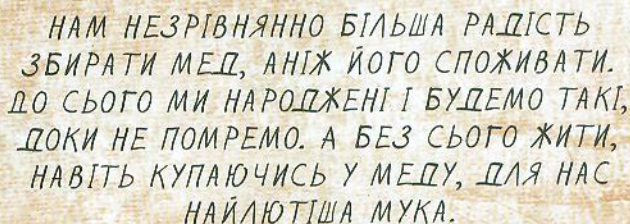 НАМ НЕЗРІВНЯННО БІЛЬША РАДІСТЬ
ЗБИРАТИ МЕД, АНІЖ ЙОГО СПОЖИВАТИ.
ДО СЬОГО МИ НАРОДЖЕНІ І БУДЕМО ТАКІ,
ДОКИ НЕ ПОМРЕМО. А БЕЗ СЬОГО ЖИТИ,
НАВІТЬ КУПАЮЧИСЬ У МЕДУ, ДЛЯ НАС
НАЙЛЮТІША МУКА.